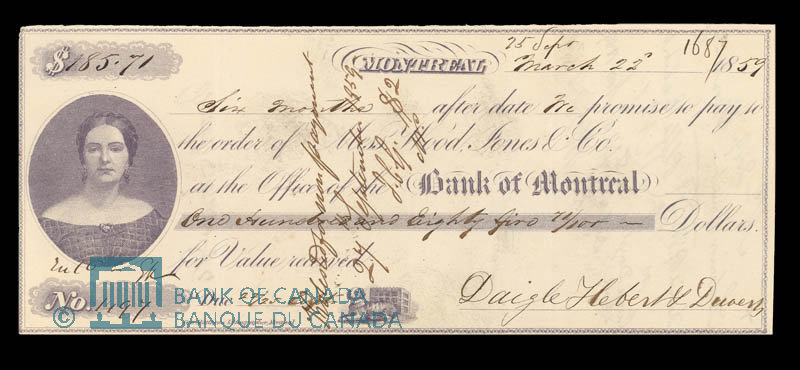 25 Sept 1687
$185.71 MONTREAL March 22d 1859
Six months after date We promise to pay to
the order of Mess Wood, Jones & Co.
at the Office of the Bank of Montreal
One Hundred and Eighty five 71/100 Dollars.
for Value received
No. 1197
Daigle Hebert &
© BANK OF CANADA
BANQUE DU CANADA